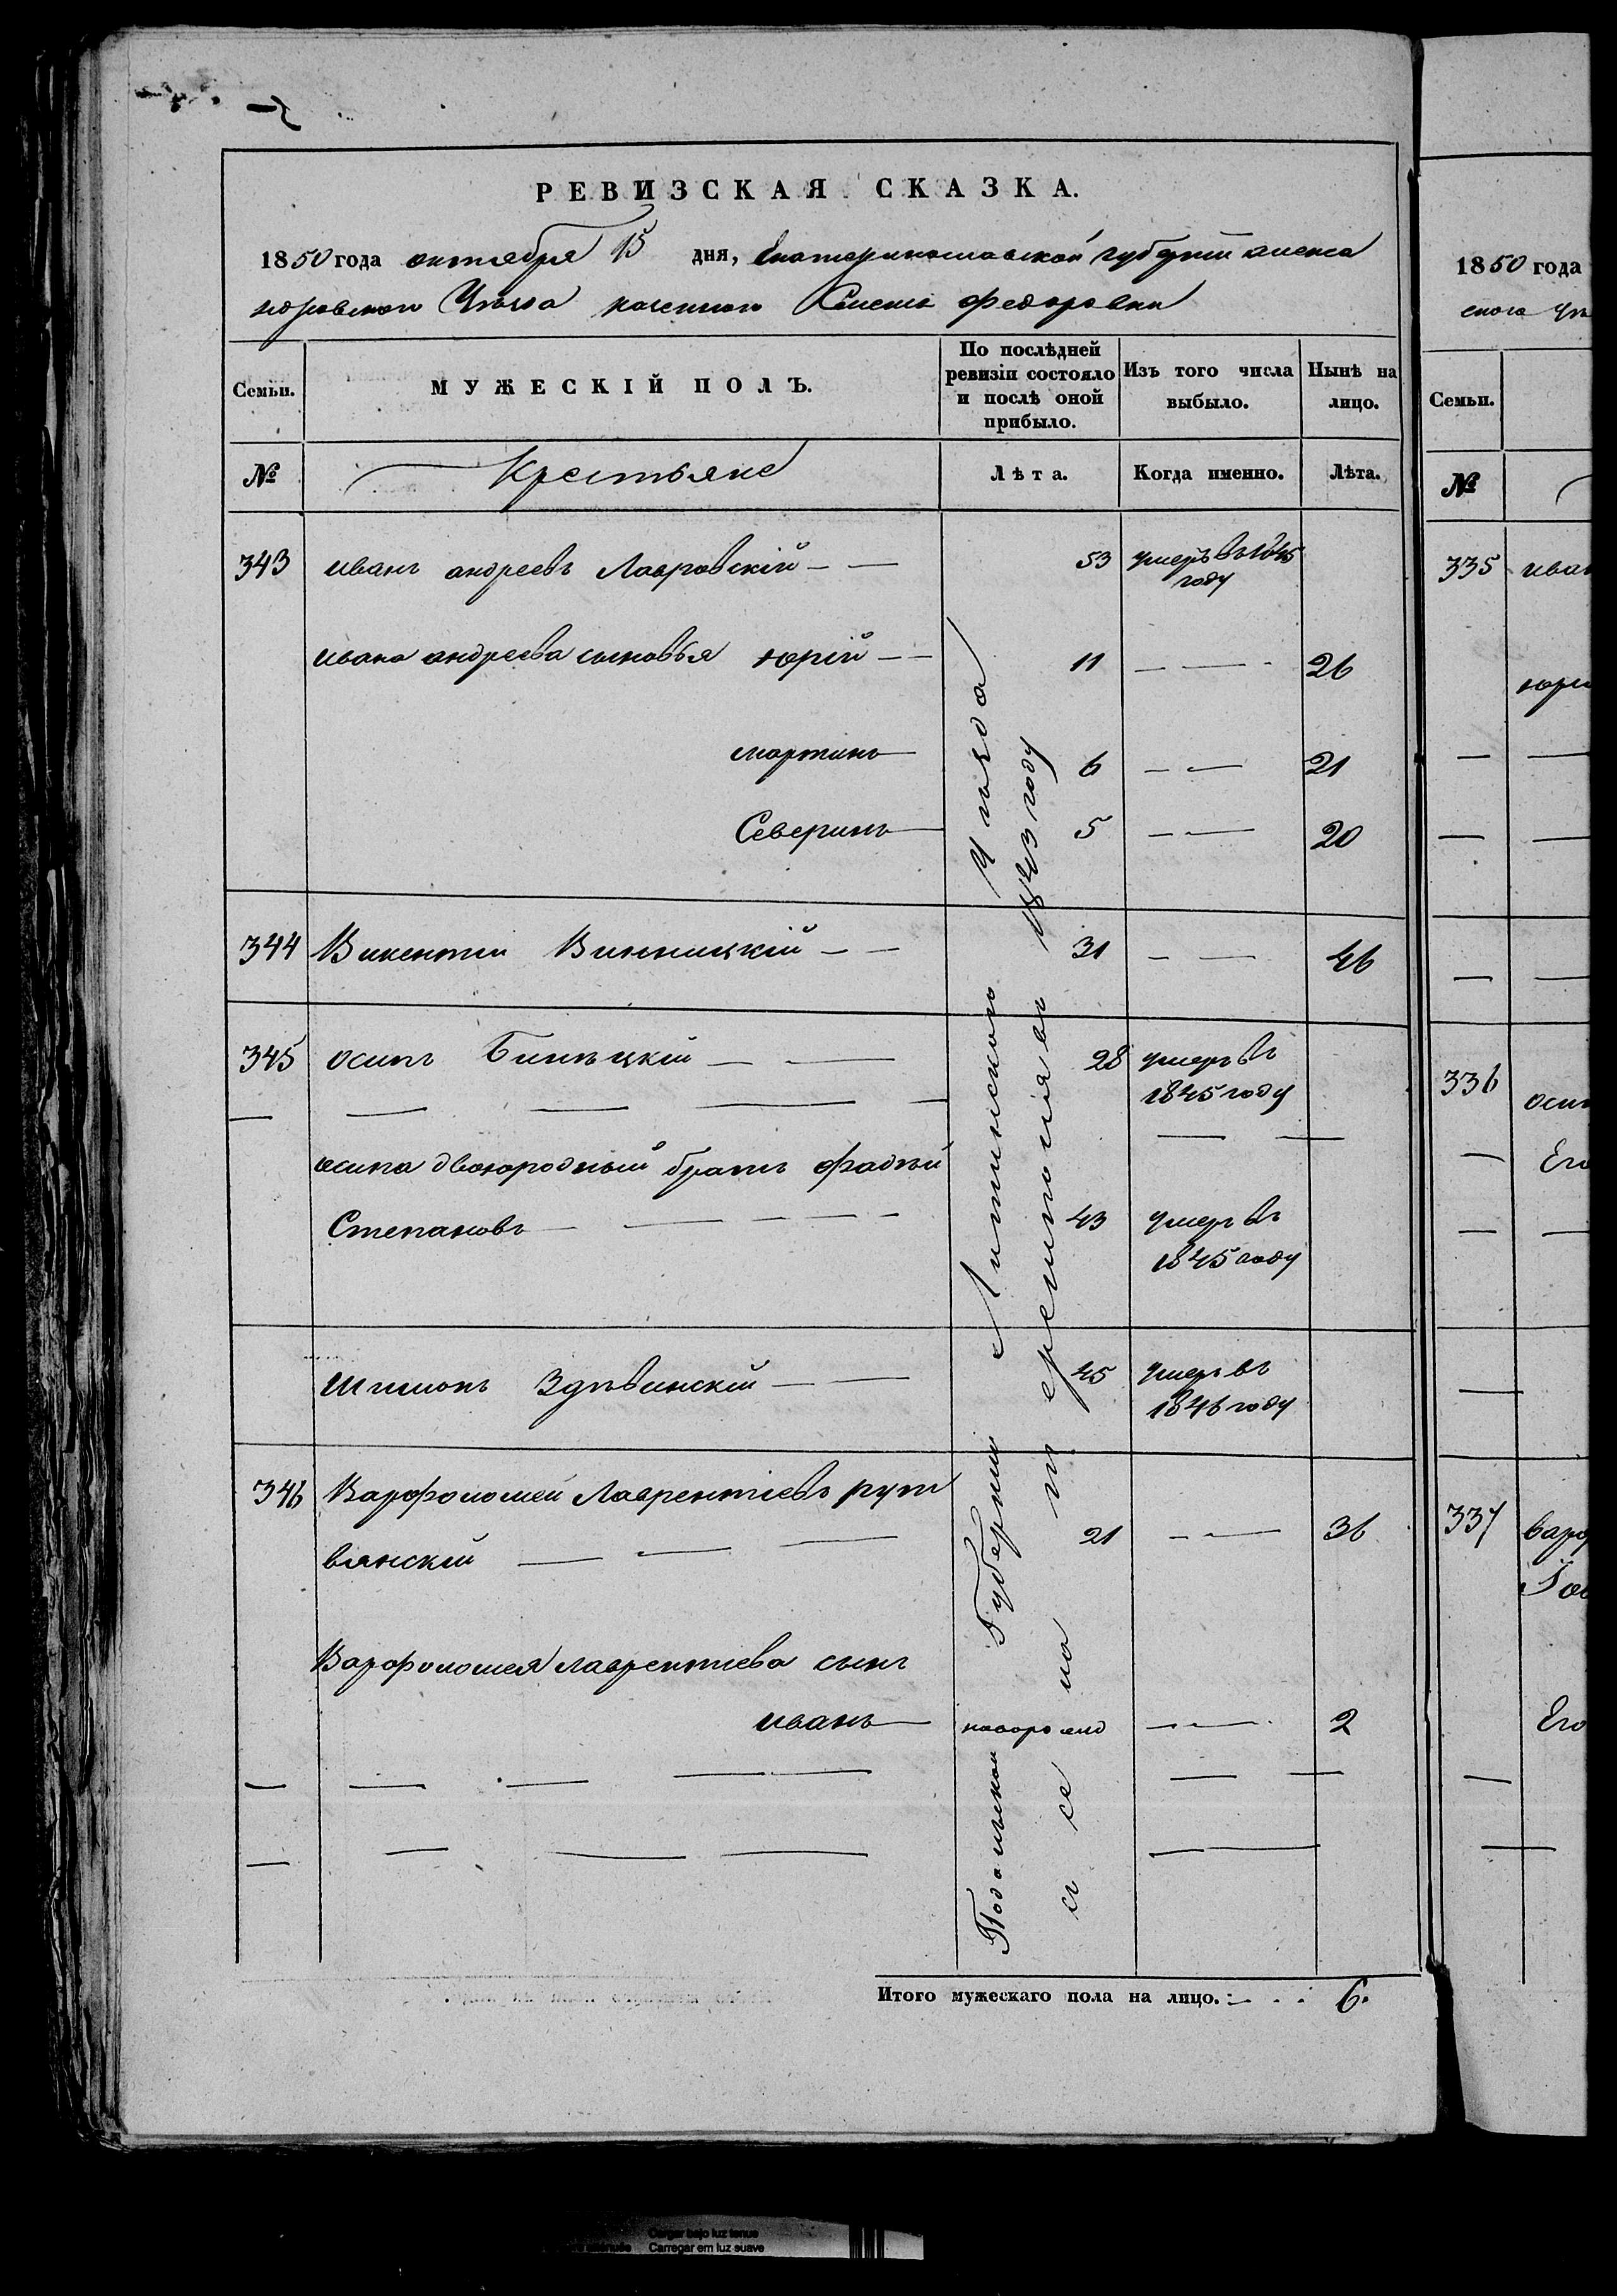 РЕВИЗСКАЯ СКАЗКА.
1850 года октября 15 дня, Екатеринославской губернiи алекса
ндровскаго Уѣзда казеннаго Селенiя федоровки
Семьи.
МУЖЕСКІЙ ПОЛЪ.
По послѣдней
ревизіи состояло
и послѣ оной
прибыло.
Изъ того числа
выбыло.
Нынѣ на
лицо.
№
Крестьяне
Лѣта.
Когда именно.
Лѣта.
343 иванъ андреевъ Лавровскій — — 53 умеръ въ 1845
году
ивана андреева сыновья юрій — — 11 — — 26
мартинъ — 6 — — 21
Северинъ — 5 — — 20
344 Викентiи Винницкій — — 31 — — 46
345 осипъ Билѣцкiй — — 28 умеръ въ
1845 году
осипа двоюродный братъ фадѣй
Степановъ — — — — 43 умеръ въ
1845 году
Шимонъ Здѣвинскiй — — 45 умеръ въ
1846 году
346 Варфоломей Лаврентiевъ рут
вянскiй — — — 21 — — 36
Варфоломея лаврентиева сынъ
иванъ — новорожд — — 2
Подольской Губернiи Литинскаго Уѣзда
1843 году
Итого мужескаго пола на лицо. 6.
1850 года
ского
Семьи.
№
335 иван
юри
336 осип
Его
337 Варф
Его
Cargar bajo luz tenue
Carregar em luz suave